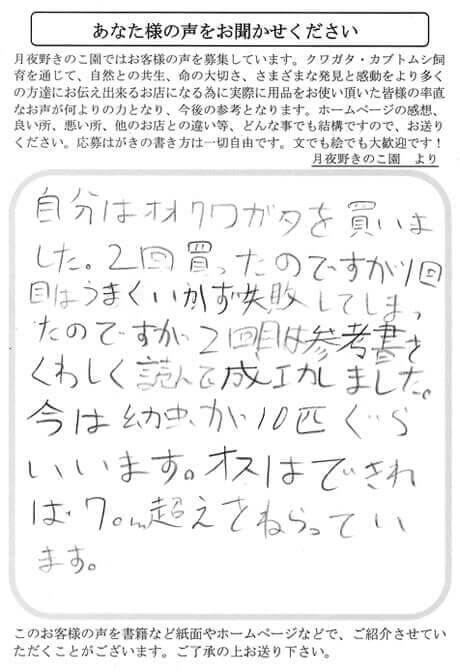 あなた様の声をお聞かせください
月夜野きのこ園ではお客様の声を募集しています。クワガタ・カブトムシ飼
育を通じて、自然との共生、命の大切さ、さまざまな発見と感動をより多く
の方達にお伝え出来るお店になる為に実際に用品をお使い頂いた皆様の率直
なお声が何よりの力となり、今後の参考となります。ホームページの感想、
良い所、悪い所、他のお店との違い等、どんな事でも結構ですので、お送り
ください。応募はがきの書き方は一切自由です。文でも絵でも大歓迎です！
月夜野きのこ園　より
自分はオオクワガタを買いま
した。2回買ったのですが1回
目はうまくいかず失敗してしまっ
たのですが2回目は参考書を
くわしく読んで成功しました。
今は幼虫が10匹ぐら
いいます。オスはできれ
ば7㎝超えをねらってい
ます。
このお客様の声を書籍など紙面やホームページなどで、ご紹介させてい
ただくことがございます。ご了承の上お送り下さい。